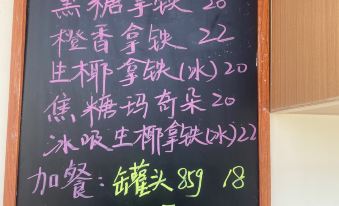 黑糖拿铁 20
橙香拿铁 22
生椰拿铁(冰) 20
焦糖玛奇朵 20
冰吸生椰拿铁(冰) 22
加餐：罐头 859 18